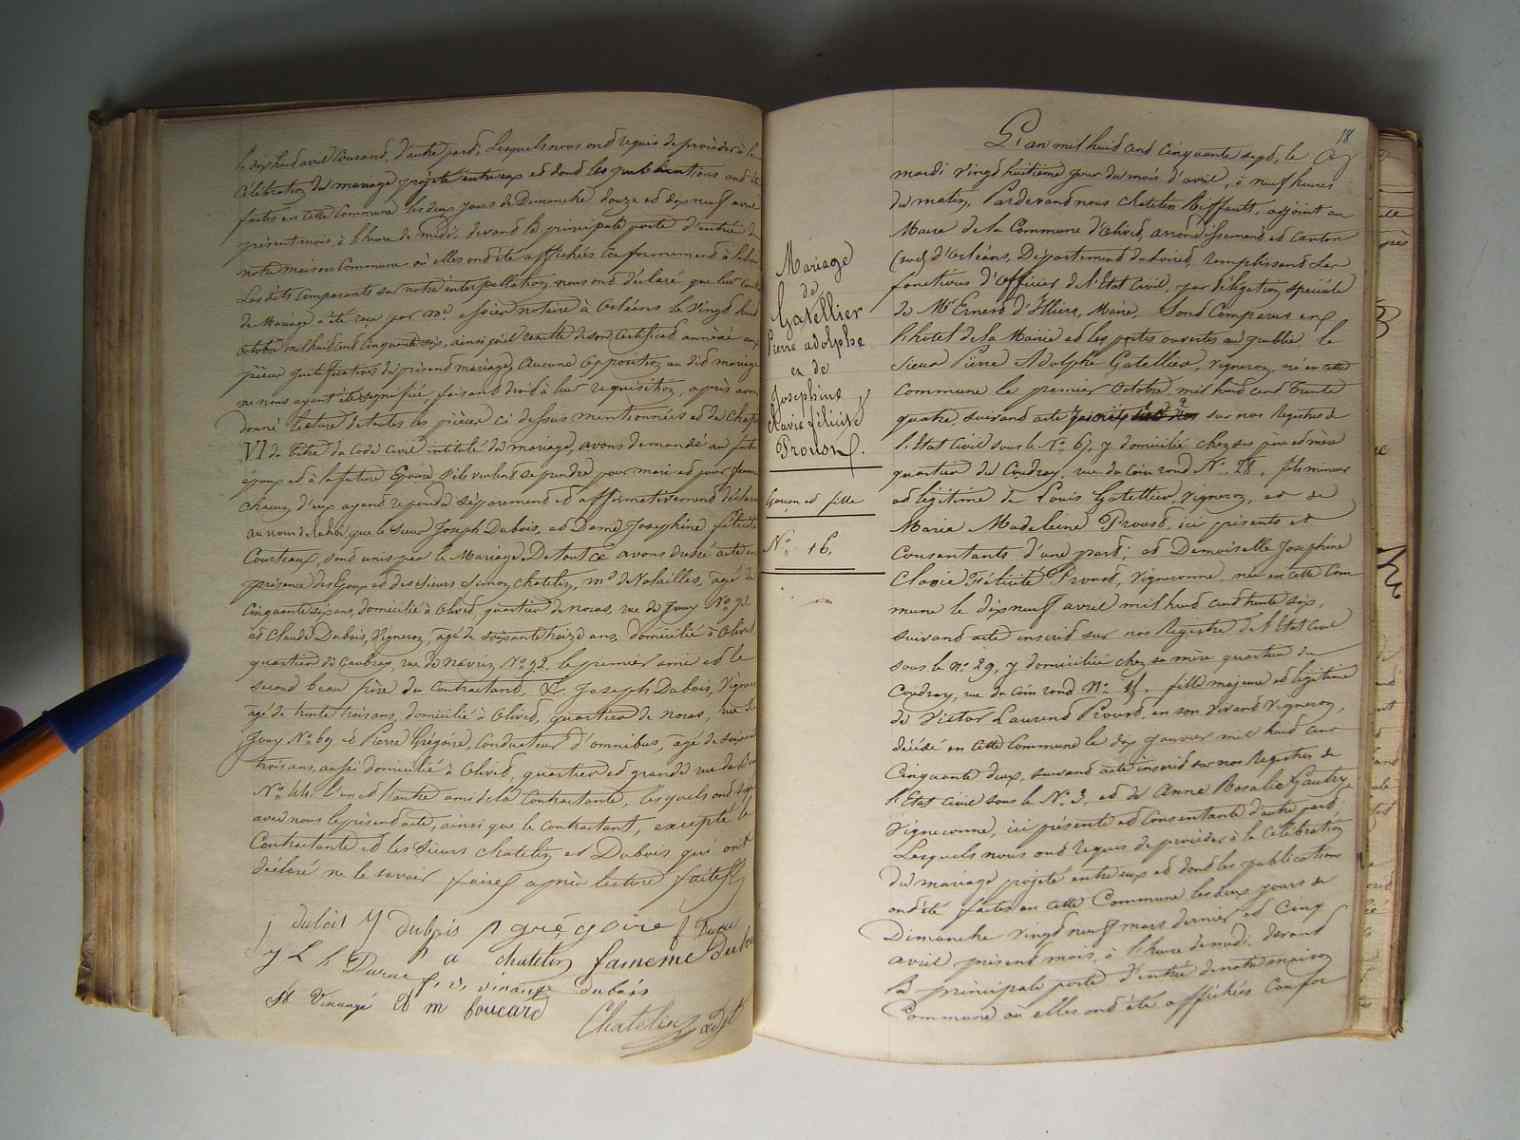 le dix huit avril courant, d'autre part, Lesquels nous ont requis de procéder à la
célébration du mariage projeté entre eux et dont les publications ont été
faites en cette Commune les deux jours de Dimanche douze et dix neuf avril
présent mois, à l'heure de midi, devant la principale porte d'entrée de
notre maison Commune où elles ont été affichées Conformément à la loi
Les dits Comparants sur notre interpellation, nous ont déclaré que leur Contrat
de Mariage a été reçu par Me notaire à Orléans le vingt huit
octobre mil huit cent cinquante six, ainsi qu'il résulte de son Certificat annexé aux
pièces justificatives du présent mariage, Aucune Opposition au dit mariage
ne nous ayant été signifiée, faisant droit à leur requisition, après avoir
donné lecture de toutes les pièces ci dessus mentionnées et du Chapitre
VI du Titre du Code Civil intitulé du mariage, avons demandé au futur
époux et à la future Epouse s'ils veulent se prendre pour mari et pour femme
chacun d'eux ayant répondu séparément et affirmativement déclarons
au nom de la loi que le Sieur Joseph Dubois, et Dame Joséphine félicité
Courteau, sont unis par le Mariage, De tout Ce avons dressé acte en
présence des Epoux et des sieurs Simon Chatelin, md de Volailles, âgé de
Cinquante six ans, domicilié à Olivet, quartier de noras, rue de Jouy No 92
et Claude Dubois, Vigneron, âgé de soixante treize ans domicilié à Olivet
quartier du Coudray, rue de No 92, le premier ami et le
second beau frère du Contractant, Et Joseph Dubois, Vigneron
âgé de trente trois ans, domicilié à Olivet, quartier de noras, rue de
Jouy No 69 et Pierre Grégoire, Conducteur d'omnibus, âgé de
trois ans, aussi domicilié à Olivet, quartier et grande rue du
No 44. l'un et l'autre amis de la Contractante, lesquels ont signé
avec nous le présent acte, ainsi que le Contractant, excepté la
Contractante et les Sieurs chatelin et Dubois qui ont
déclaré ne le savoir faire, après lecture faite
J dubois dubois p grégoire
p a chatelin
dubois
m foucard
Chatelin adjt
Mariage
de
Gatellier
Pierre adolphe
et de
Josephine
Clavie félicité
Proust.
Garçon et fille
No 16.
18
L'an mil huit cent cinquante sept, le
mardi vingt huitième jour du mois d'avril, à neuf heures
du matin, Pardevant nous Chatelin adjoint au
Maire de la Commune d'Olivet, arrondissement et canton
(sud) d'Orléans, Département du Loiret, remplissant les
fonctions d'officier de l'Etat Civil, par délégation spéciale
de Mr Ernest d'Illiers, Maire, Sont Comparus en
l'hotel de la Mairie et les portes ouvertes au public le
Sieur Pierre Adolphe Gatellier, Vigneron, né en cette
Commune le premier Octobre mil huit cent trente
quatre, suivant acte inscrit sur nos Registres de
l'Etat Civil sous le No 61, y domicilié chez ses père et mère
quartier du Coudray, rue du Coin rond No 28, fils mineur
et légitime de Louis Gatellier Vigneron, et de
Marie Madeleine Proust, ici présents et
Consentants d'une part; et Demoiselle Josephine
Clavie Félicité Proust, Vigneronne, née en cette Com
mune le dix neuf avril mil huit cent trente six,
suivant acte inscrit sur nos Registres de l'Etat Civil
sous le No 29, y domiciliée chez sa mère quartier du
Coudray, rue du Coin rond No 15. fille majeure et légitime
de Victor Laurent Proust, en son vivant Vigneron,
décédé en cette Commune le dix janvier mil huit cent
Cinquante deux, suivant acte inscrit sur nos Registres de
l'Etat Civil sous le No 3, et de Anne Rosalie Gautry
Vigneronne, ici présente et Consentante d'autre part,
Lesquels nous ont requis de procéder à la Célébration
du mariage projeté entre eux et dont les publications
ont été faites en cette Commune les deux jours de
Dimanche vingt neuf mars dernier et Cinq
avril, présent mois, à l'heure de midi, devant
la principale porte d'entrée de notre maison
Commune où elles ont été affichées Confor